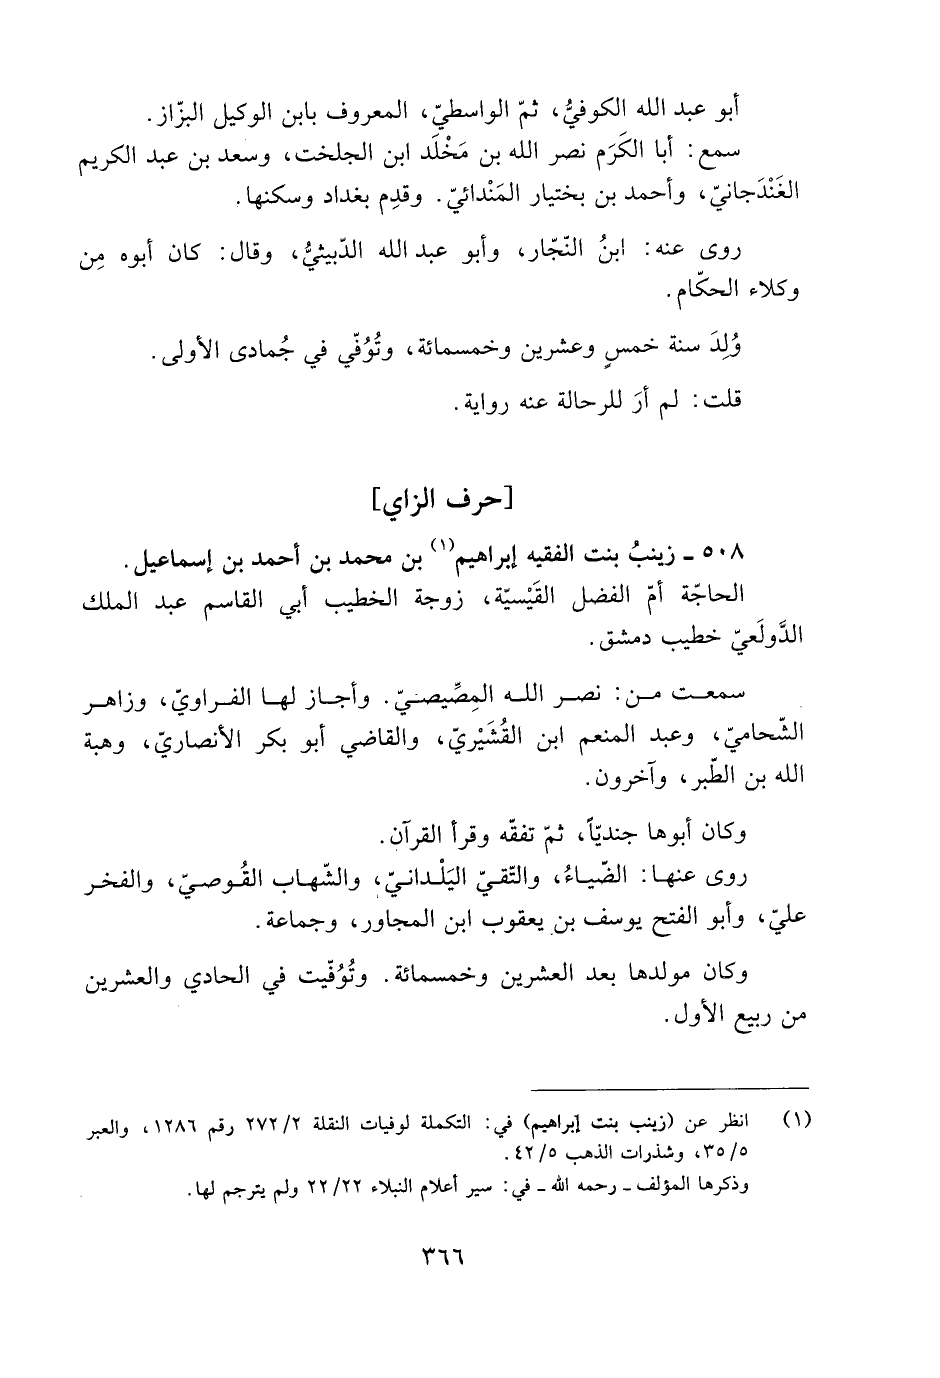 أبو عبد الله الكوفيُّ، ثمّ الواسطيّ، المعروف بابن الوكيل البزّاز.
سمع: أبا الكَرَم نصر الله بن مَخْلَد ابن الجلخت، وسعد بن عبد الكريم
الغَنْدَجانيّ، وأحمد بن بختيار المَنْدائيّ. وقدِم بغداد وسكنها.
روى عنه: ابنُ النّجّار، وأبو عبد الله الدّبيثيُّ، وقال: كان أبوه مِن
وكلاء الحكّام.
وُلِدَ سنة خمسٍ وعشرين وخمسمائة، وتُوُفّي في جُمادى الأولى.
قلت: لم أرَ للرحالة عنه رواية.
[حرف الزاي]
٥٠٨ ـ زينبُ بنت الفقيه إبراهيم(١) بن محمد بن أحمد بن إسماعيل.
الحاجّة أمّ الفضل القَيْسيّة، زوجة الخطيب أبي القاسم عبد الملك
الدَّولَعيّ خطيب دمشق.
سمعت من: نصر الله المِصِّيصيّ. وأجاز لها الفراويّ، وزاهر
الشّحاميّ، وعبد المنعم ابن القُشَيْريّ، والقاضي أبو بكر الأنصاريّ، وهبة
الله بن الطّبر، وآخرون.
وكان أبوها جنديّاً، ثمّ تفقّه وقرأ القرآن.
روى عنها: الضّياءُ، والتّقيّ اليَلْدانيّ، والشّهاب القُوصيّ، والفخر
عليّ، وأبو الفتح يوسف بن يعقوب ابن المجاور، وجماعة.
وكان مولدها بعد العشرين وخمسمائة. وتُوُفّيت في الحادي والعشرين
من ربيع الأول.
(١) انظر عن (زينب بنت إبراهيم) في: التكملة لوفيات النقلة ٢/ ٢٧٢ رقم ١٢٨٦، والعبر
٥/ ٣٥، وشذرات الذهب ٥/ ٤٢.
وذكرها المؤلف ـ رحمه الله ـ في: سير أعلام النبلاء ٢٢/ ٢٢ ولم يترجم لها.
٣٦٦